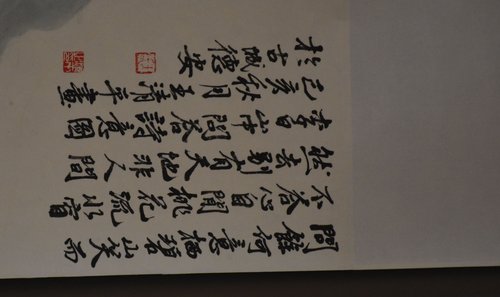 問餘何意棲碧山笑而
不答心自閒桃花流水窅
然去別有天地非人間
李白山中問答詩意圖
己亥秋月王清平畫
於古德安